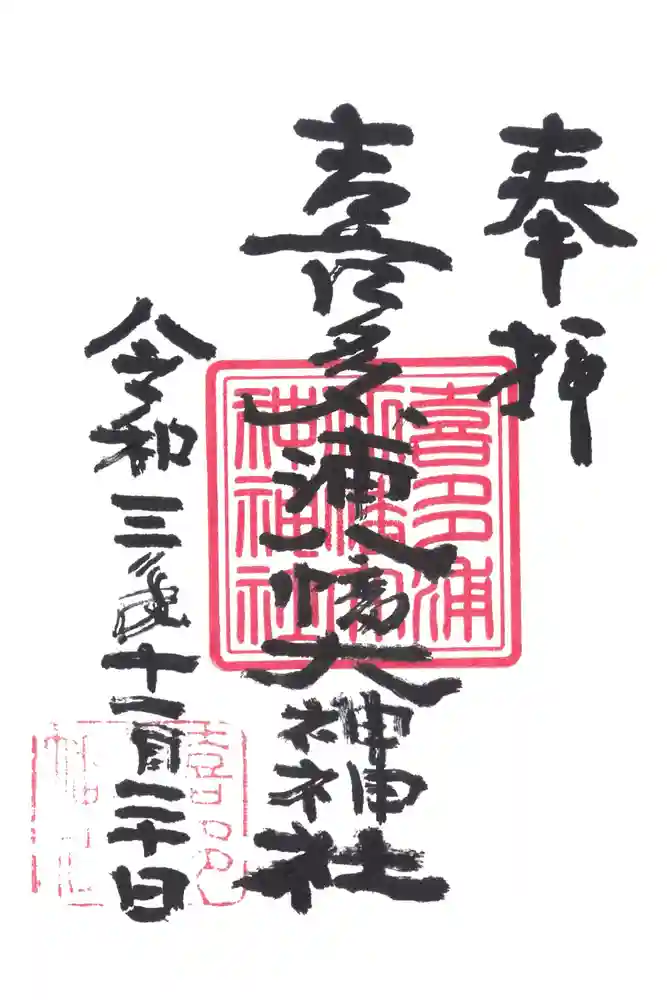 奉拝
喜多浦八幡大神神社
令和三歳十一月二十日
喜多浦
八幡大
神神社